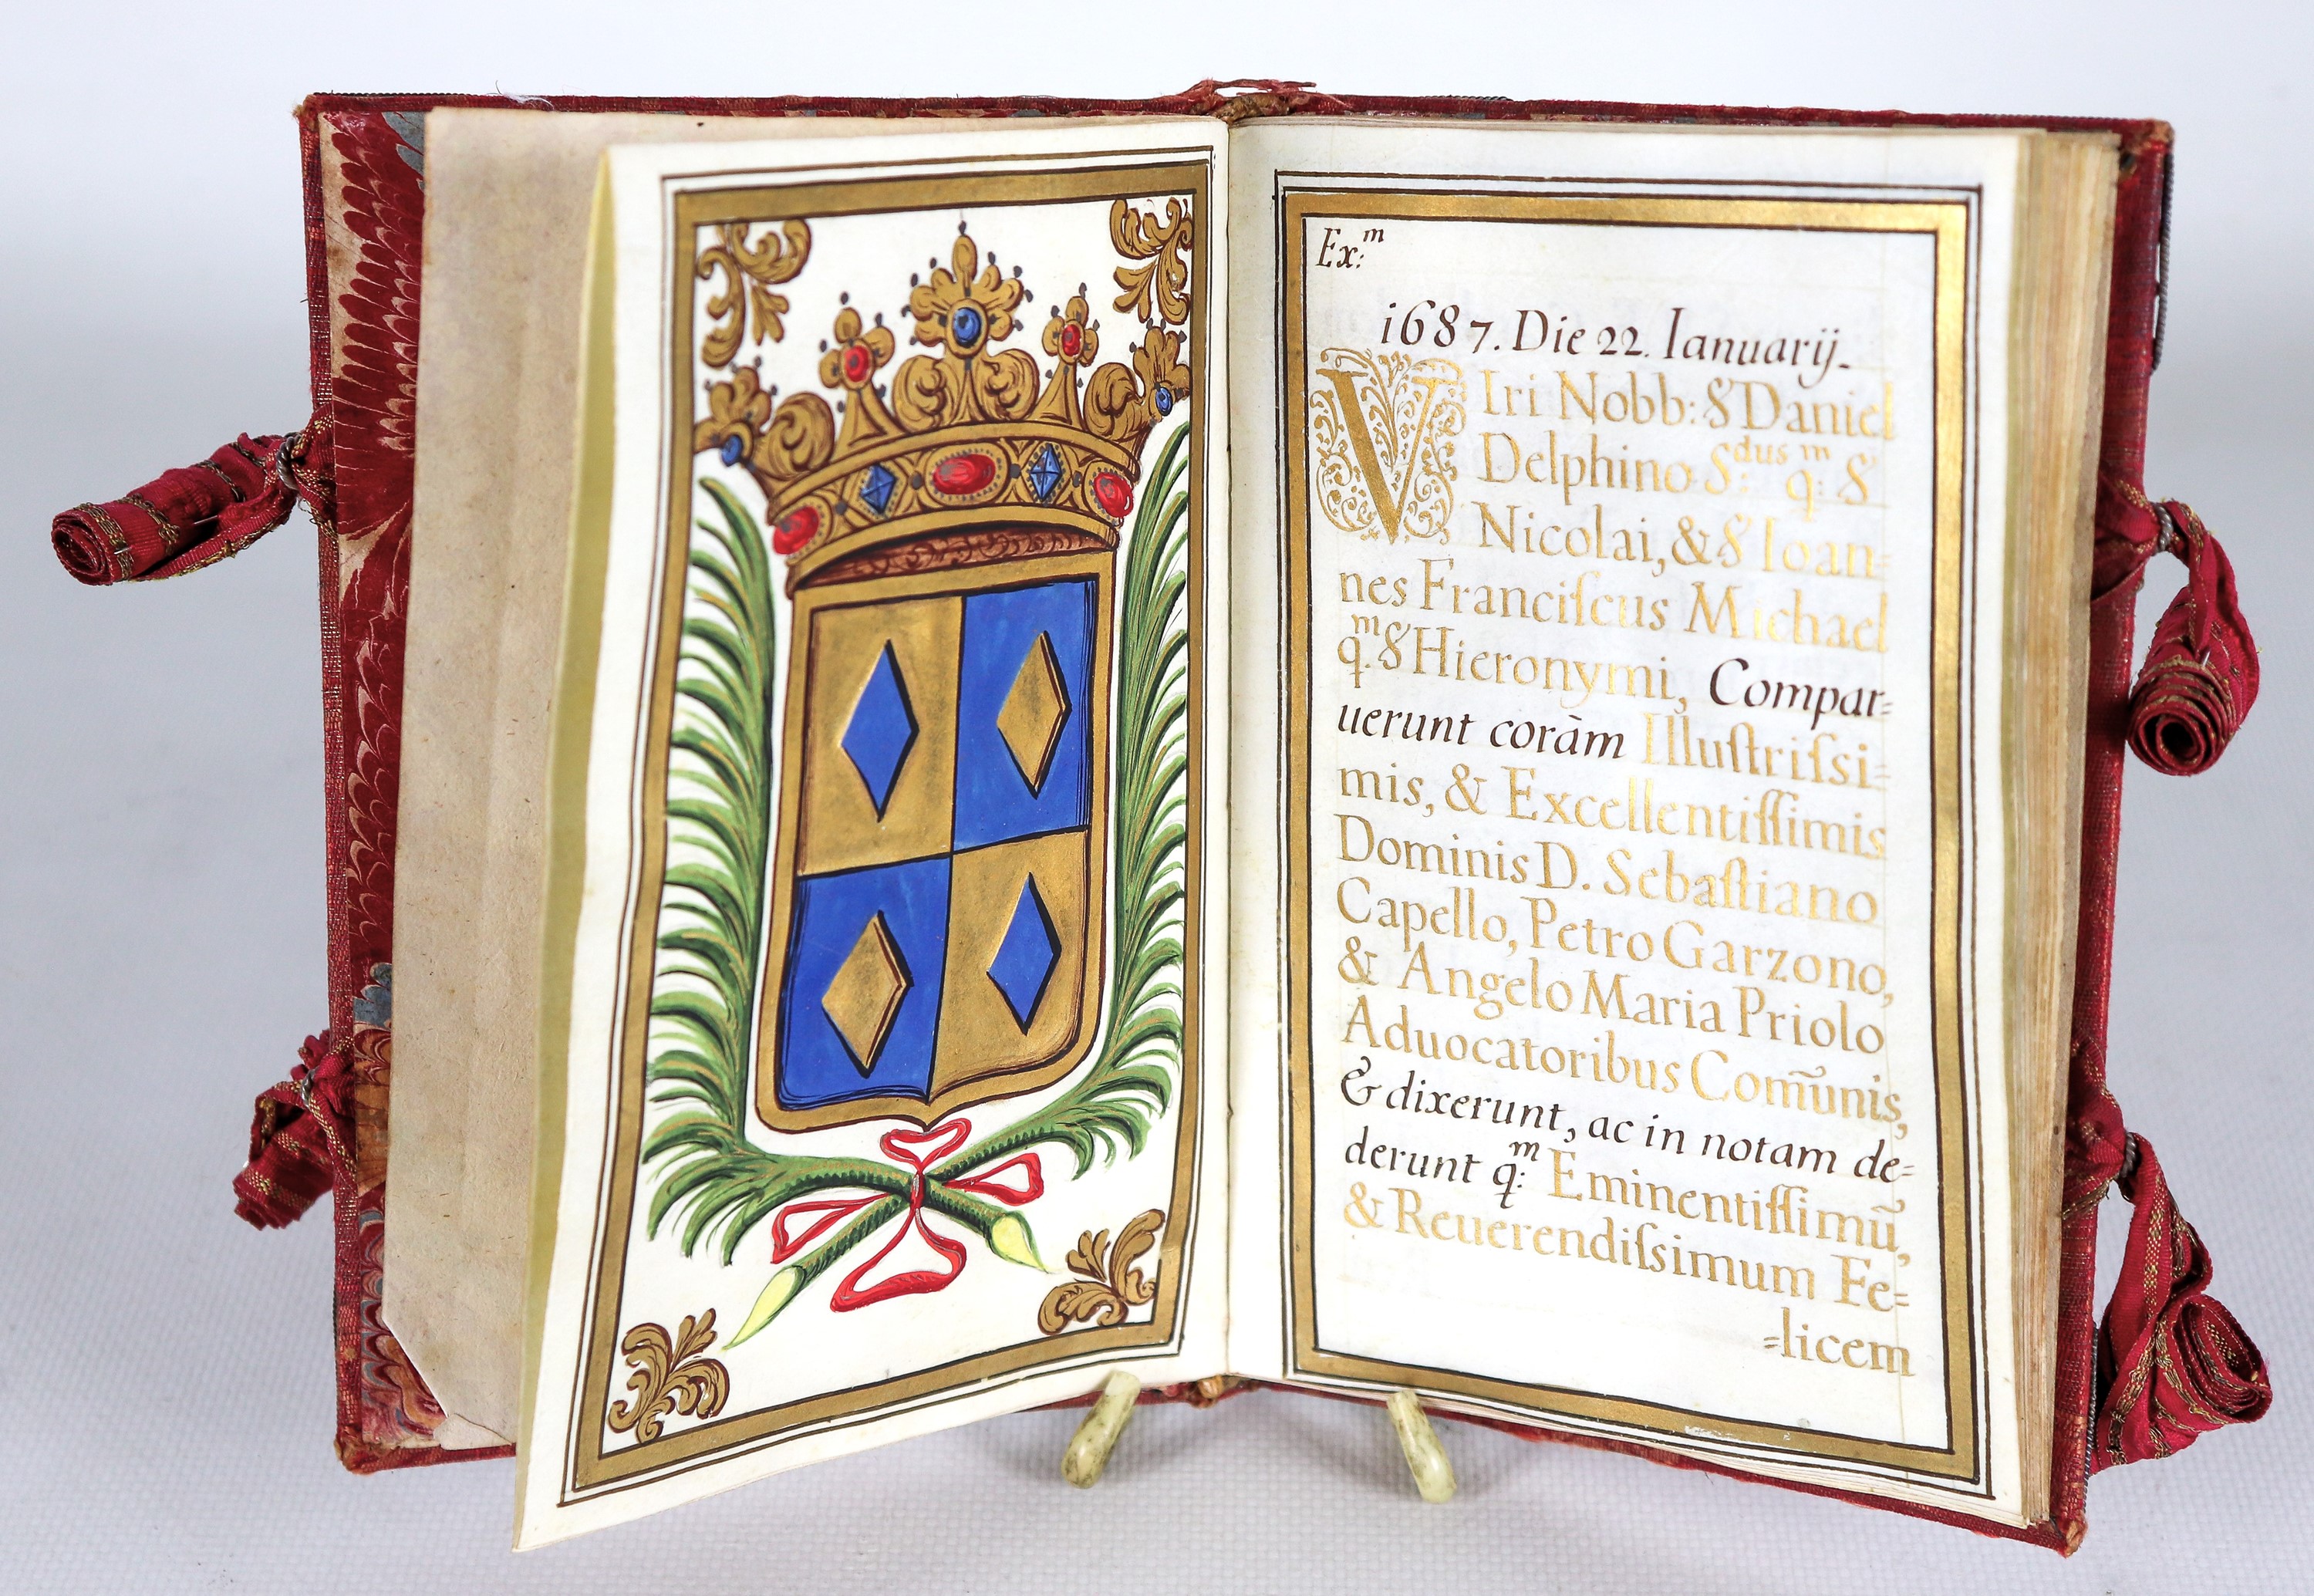 Ex:ᵐ
1687. Die 22. Ianuarij.
VIri Nobb: S Daniel
Delphino S:ᵈᵘˢ q:ᵐ S
Nicolai, & S Ioan=
nes Franciſcus Michael
q.ᵐ S Hieronymi, Compar=
uerunt coràm Illuſtriſsi=
mis, & Excellentiſſimis
Dominis D. Sebaſtiano
Capello, Petro Garzono,
& Angelo Maria Priolo
Aduocatoribus Com̃unis,
& dixerunt, ac in notam de=
derunt q:ᵐ Eminentiſſimũ,
& Reuerendiſsimum Fe=
=licem